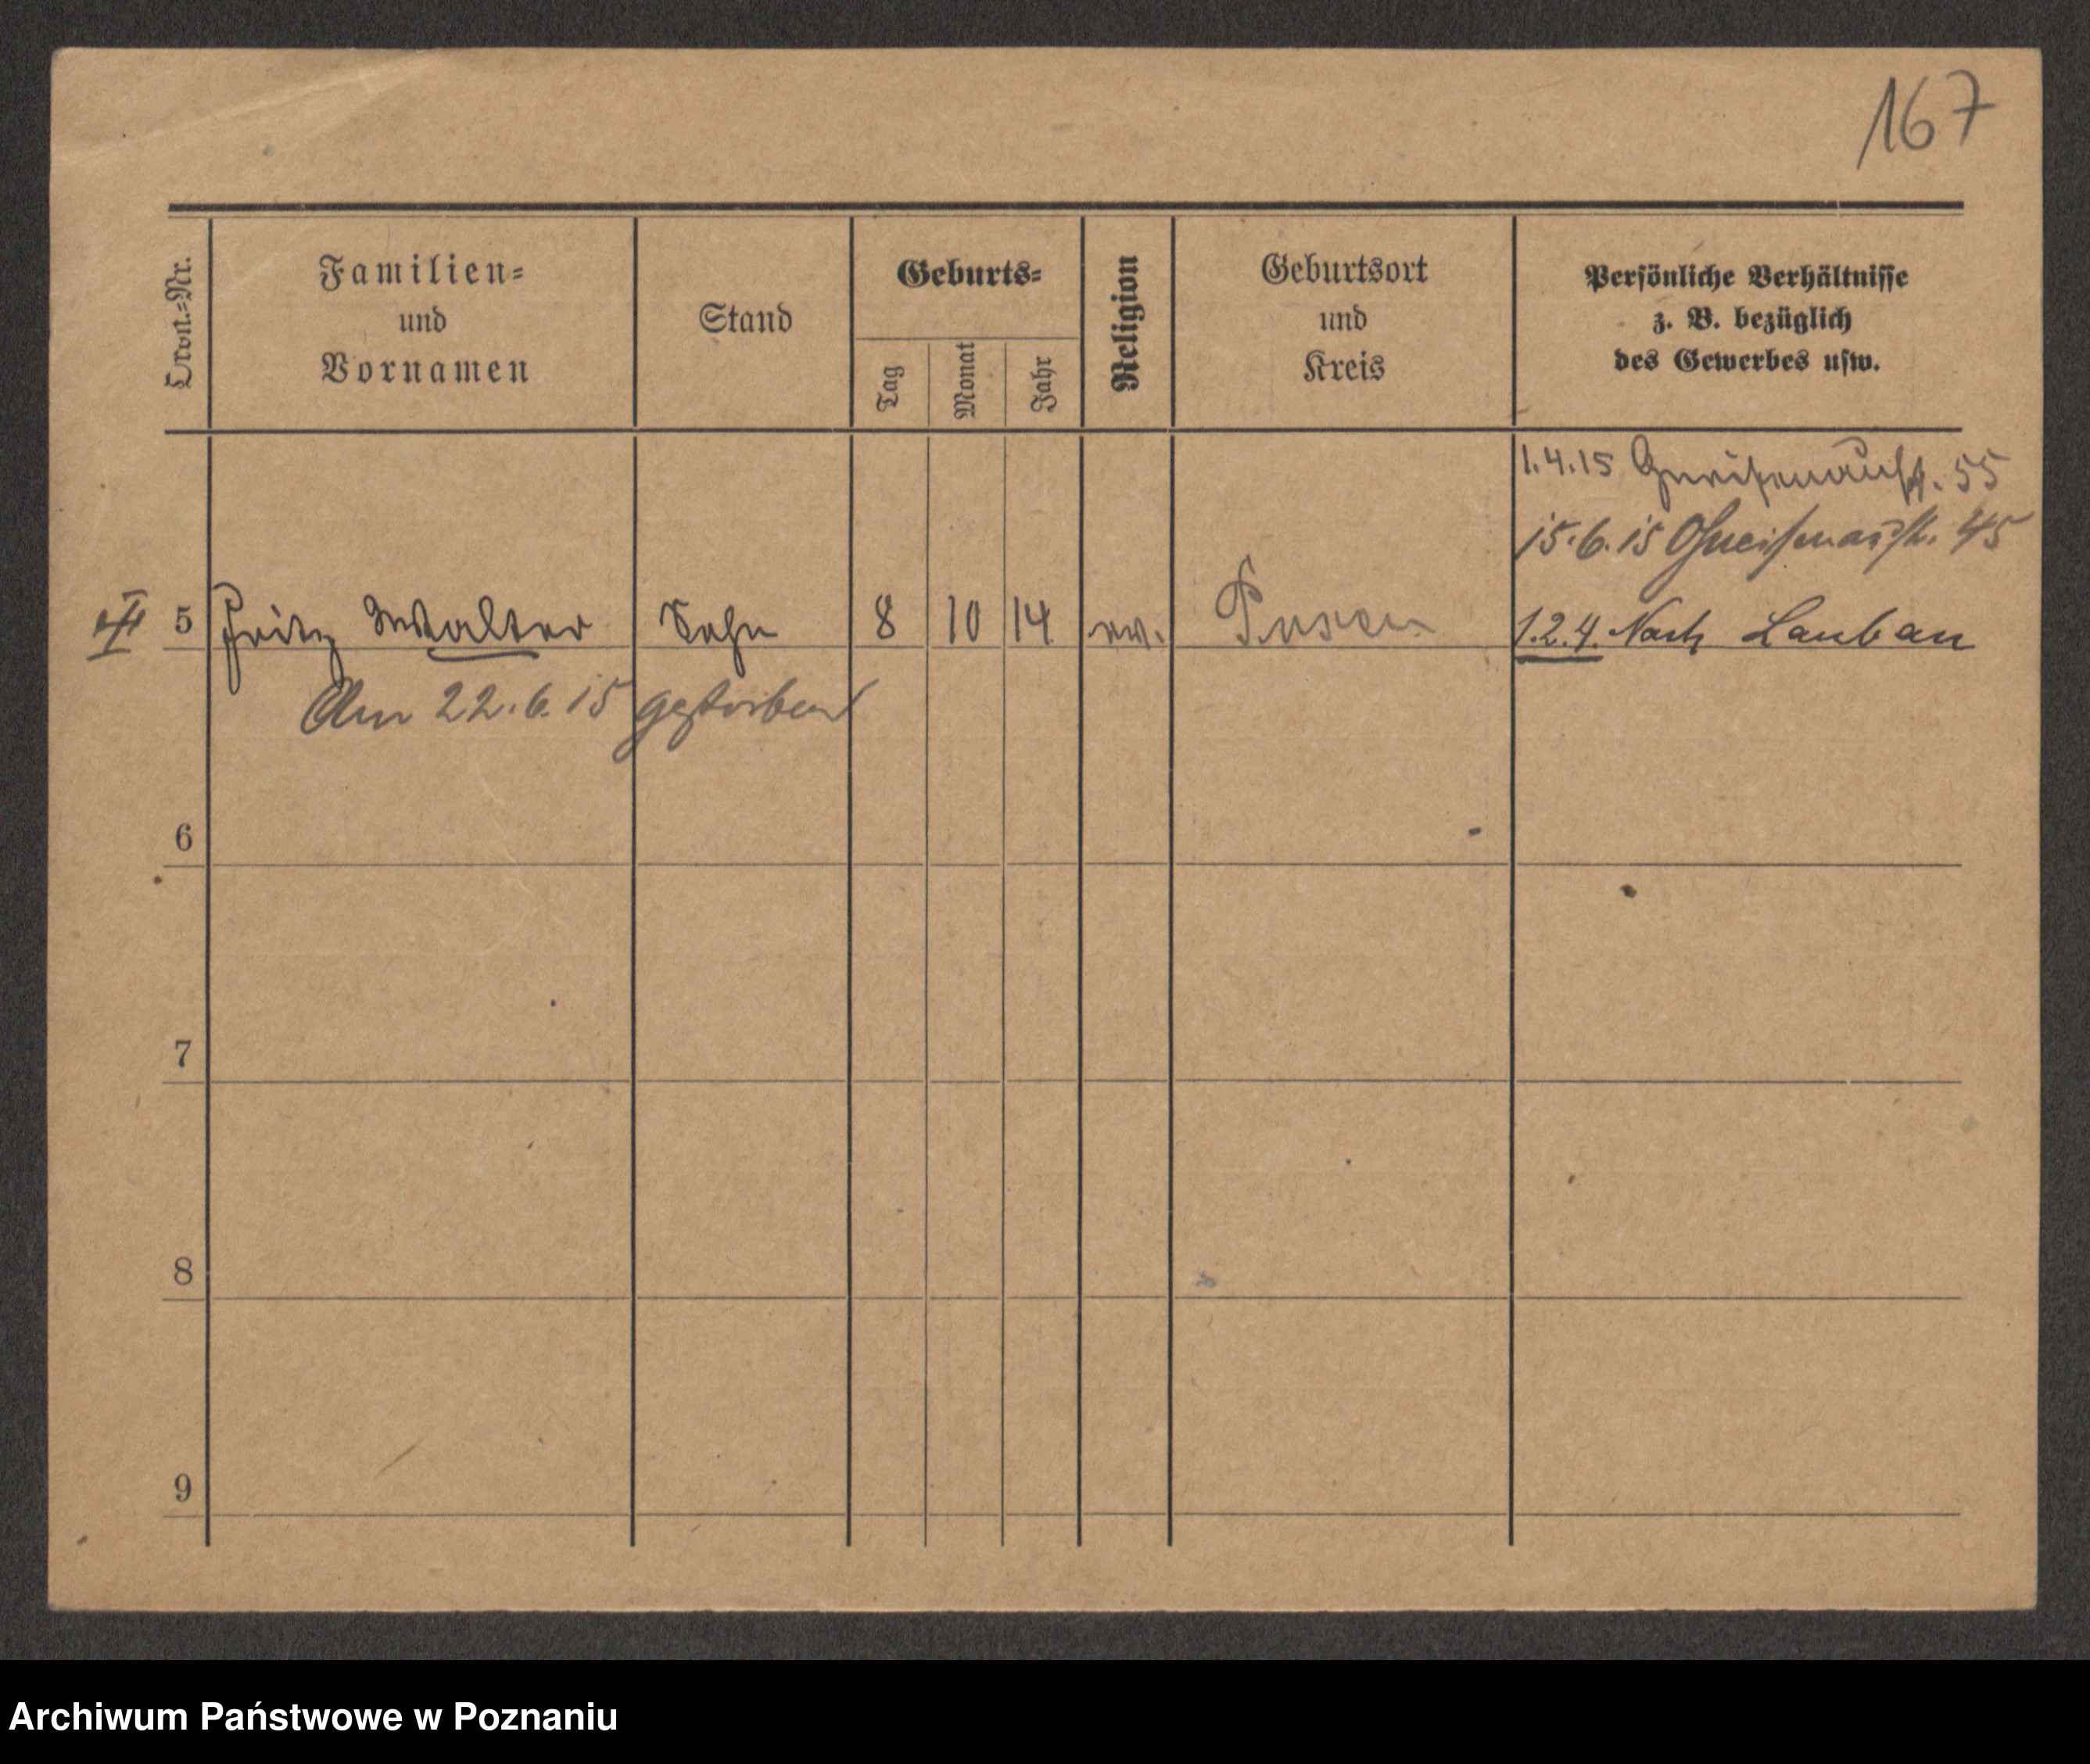 167
Ordn.=Nr.
Familien=
und
Vornamen
Stand
Geburts=
Tag
Monat
Jahr
Religion
Geburtsort
und
Kreis
Persönliche Verhältnisse
z. B. bezüglich
des Gewerbes usw.
1.4.15 Gneisenaustr. 55
15.6.15 Gneisenaustr. 45
5 Fritz Walter Sohn 8 10 14 ev. Posen 1.2.4. Nach Lauban
Am 22.6.15 gestorben
6
7
8
9
Archiwum Państwowe w Poznaniu